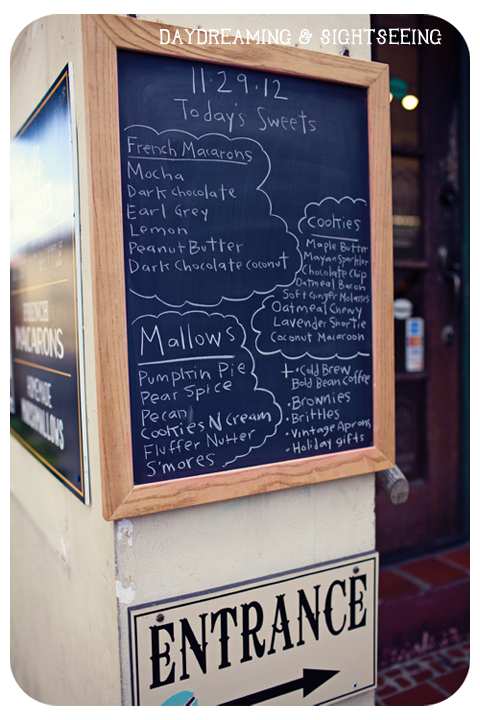 DAYDREAMING & SIGHTSEEING
11·29·12
Today's Sweets
French Macarons
Mocha
Dark chocolate
Earl Grey
Lemon
Peanut Butter
Dark Chocolate coconut
cookies
Maple Butter
Mayan Sparkler
Chocolate Chip
Oatmeal Bacon
Soft Ginger Molasses
Oatmeal Chewy
Lavender Shortie
Coconut Macaroon
Mallows
Pumpkin Pie
Pear Spice
Pecan
Cookies N Cream
Fluffer Nutter
S'mores
+ • Cold Brew
Bold Bean Coffee
• Brownies
• Brittles
• Vintage Aprons
• Holiday gifts
FRENCH
MACARONS
HOMEMADE
MARSHMALLOWS
ENTRANCE